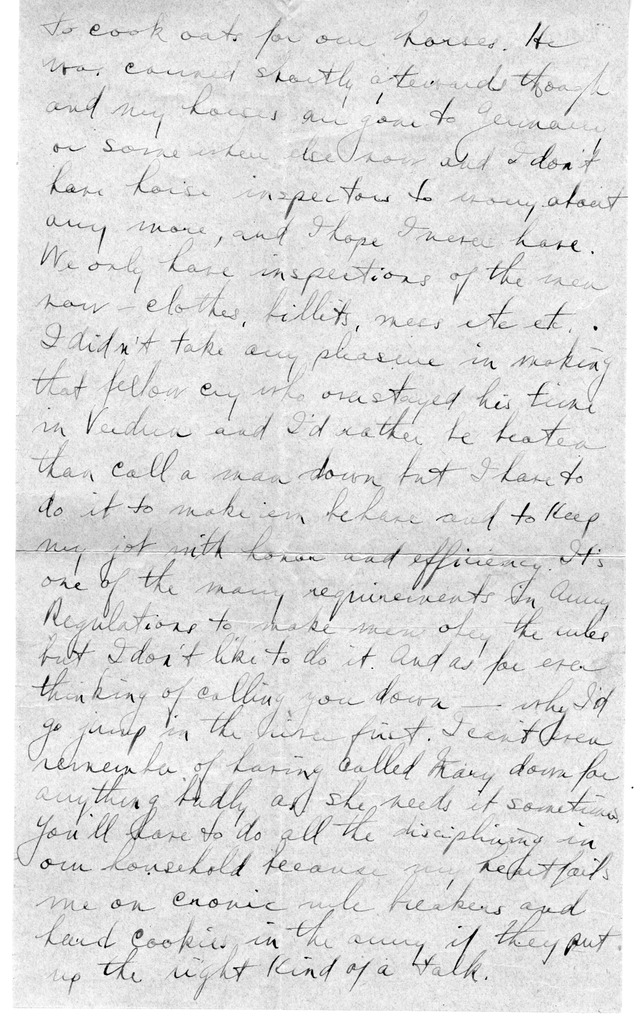 to cook oats for our horses. He
was canned shortly afterwards though
and my horses are gone to Germany
or somewhere else now and I don't
have horse inspectors to worry about
any more, and I hope I never have.
We only have inspections of the men
now - clothes, billits, mess etc etc.
I didn't take any pleasure in making
that fellow cry who overstayed his time
in Verdun and I'd rather be beaten
than call a man down but I have to
do it to make 'em behave and to keep
my job with honor and efficiency. It's
one of the many requirements in Army
Regulations to make men obey the rules
but I don't like to do it. And as for ever
thinking of calling you down — why I'd
go jump in the river first. I can't even
remember of having called Mary down for
anything badly as she needs it sometimes.
You'll have to do all the disciplining in
our household because my heart fails
me on cronic rule breakers and
hard cookies in the army if they put
up the right kind of a talk.